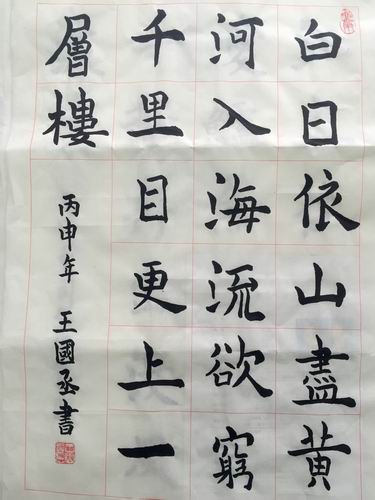 白日依山盡黄
河入海流欲窮
千里目更上一
層樓
丙申年 王國丞書